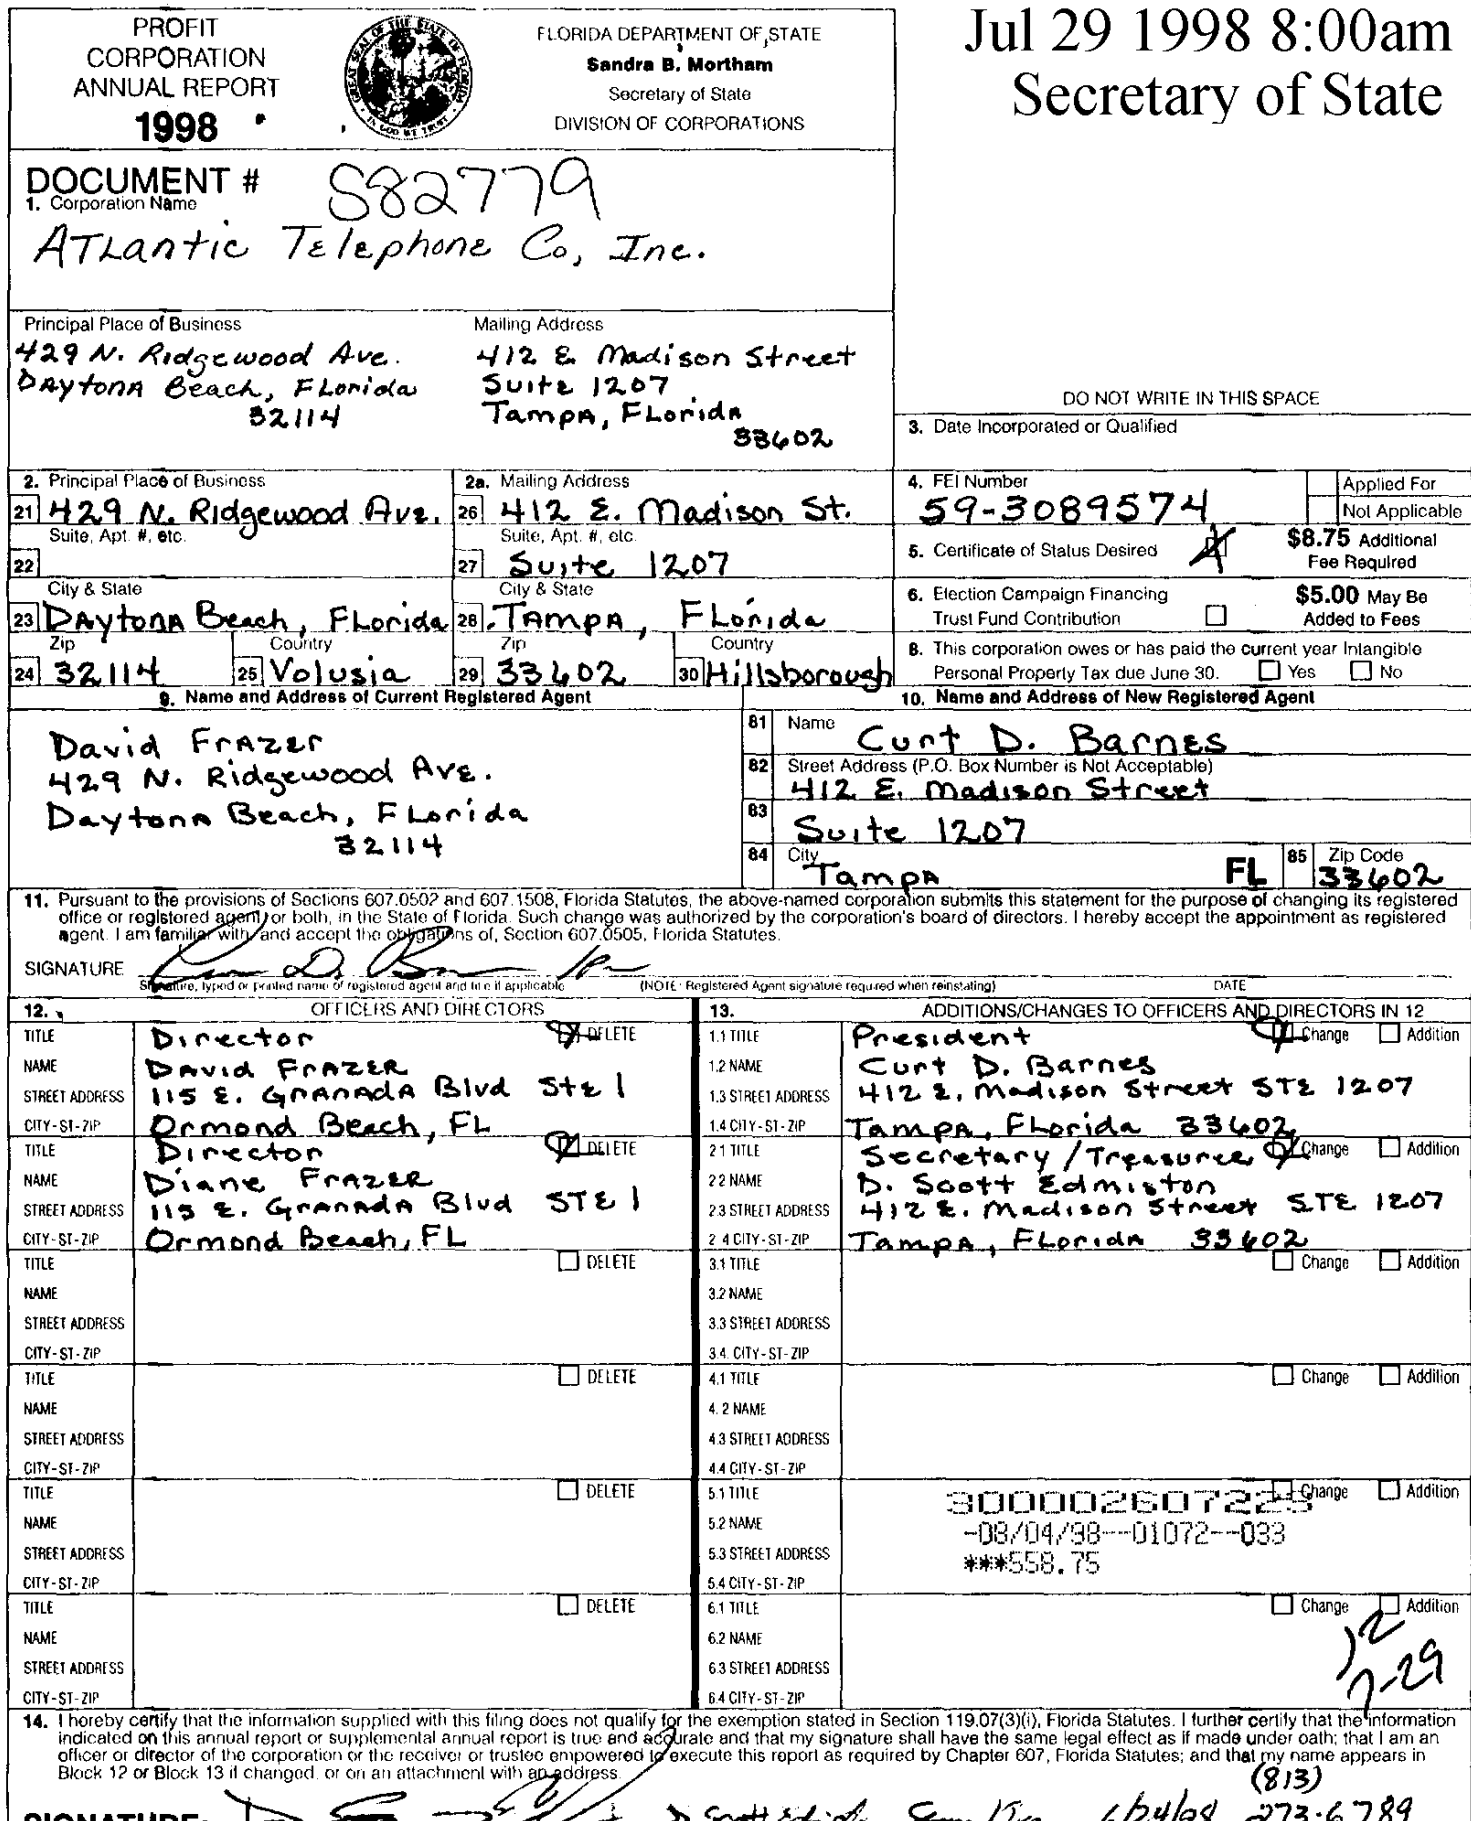 PROFIT
CORPORATION
ANNUAL REPORT
1998
FLORIDA DEPARTMENT OF STATE
Sandra B. Mortham
Secretary of State
DIVISION OF CORPORATIONS
Jul 29 1998 8:00am
Secretary of State
DOCUMENT # S82779
1. Corporation Name
Atlantic Telephone Co, Inc.
Principal Place of Business
429 N. Ridgewood Ave.
Daytona Beach, Florida
32114
Mailing Address
412 E Madison Street
Suite 1207
Tampa, Florida
33602
DO NOT WRITE IN THIS SPACE
3. Date Incorporated or Qualified
2. Principal Place of Business
21 429 N. Ridgewood Ave.
Suite, Apt. #, etc.
22
City & State
23 Daytona Beach, Florida
Zip
24 32114
Country
25 Volusia
2a. Mailing Address
26 412 E. Madison St.
Suite, Apt. #, etc.
27 Suite 1207
City & State
28 Tampa, Florida
Zip
29 33602
Country
30 Hillsborough
4. FEI Number
59-3089574
Applied For
Not Applicable
5. Certificate of Status Desired
$8.75 Additional
Fee Required
6. Election Campaign Financing
Trust Fund Contribution
$5.00 May Be
Added to Fees
8. This corporation owes or has paid the current year Intangible
Personal Property Tax due June 30. Yes No
9. Name and Address of Current Registered Agent
David Frazer
429 N. Ridgewood Ave.
Daytona Beach, Florida
32114
10. Name and Address of New Registered Agent
81 Name
Curt D. Barnes
82 Street Address (P.O. Box Number is Not Acceptable)
412 E. Madison Street
83
Suite 1207
84 City
Tampa FL
85 Zip Code
33602
11. Pursuant to the provisions of Sections 607.0502 and 607.1508, Florida Statutes, the above-named corporation submits this statement for the purpose of changing its registered
office or registered agent, or both, in the State of Florida. Such change was authorized by the corporation's board of directors. I hereby accept the appointment as registered
agent. I am familiar with, and accept the obligations of, Section 607.0505, Florida Statutes.
SIGNATURE
Signature, typed or printed name of registered agent and title if applicable (NOTE: Registered Agent signature required when reinstating) DATE
12. OFFICERS AND DIRECTORS
TITLE Director DELETE
NAME David Frazer
STREET ADDRESS 115 E. Granada Blvd Ste 1
CITY-ST-ZIP Ormond Beach, FL
TITLE Director DELETE
NAME Diane Frazer
STREET ADDRESS 115 E. Granada Blvd STE 1
CITY-ST-ZIP Ormond Beach, FL
TITLE DELETE
NAME
STREET ADDRESS
CITY-ST-ZIP
TITLE DELETE
NAME
STREET ADDRESS
CITY-ST-ZIP
TITLE DELETE
NAME
STREET ADDRESS
CITY-ST-ZIP
TITLE DELETE
NAME
STREET ADDRESS
CITY-ST-ZIP
13. ADDITIONS/CHANGES TO OFFICERS AND DIRECTORS IN 12
1.1 TITLE President Change Addition
1.2 NAME Curt D. Barnes
1.3 STREET ADDRESS 412 E. Madison Street STE 1207
1.4 CITY-ST-ZIP Tampa, Florida 33602
2.1 TITLE Secretary/Treasurer Change Addition
2.2 NAME D. Scott Edmiston
2.3 STREET ADDRESS 412 E. Madison Street STE 1207
2.4 CITY-ST-ZIP Tampa, Florida 33602
3.1 TITLE Change Addition
3.2 NAME
3.3 STREET ADDRESS
3.4. CITY-ST-ZIP
4.1 TITLE Change Addition
4.2 NAME
4.3 STREET ADDRESS
4.4 CITY-ST-ZIP
5.1 TITLE 300002607225 Change Addition
5.2 NAME -08/04/98--01072--033
5.3 STREET ADDRESS ***558.75
5.4 CITY-ST-ZIP
6.1 TITLE Change Addition
6.2 NAME
6.3 STREET ADDRESS
6.4 CITY-ST-ZIP
7-29
14. I hereby certify that the information supplied with this filing does not qualify for the exemption stated in Section 119.07(3)(i), Florida Statutes. I further certify that the information
indicated on this annual report or supplemental annual report is true and accurate and that my signature shall have the same legal effect as if made under oath; that I am an
officer or director of the corporation or the receiver or trustee empowered to execute this report as required by Chapter 607, Florida Statutes; and that my name appears in
Block 12 or Block 13 if changed, or on an attachment with an address.
(813)
SIGNATURE: 273-6789